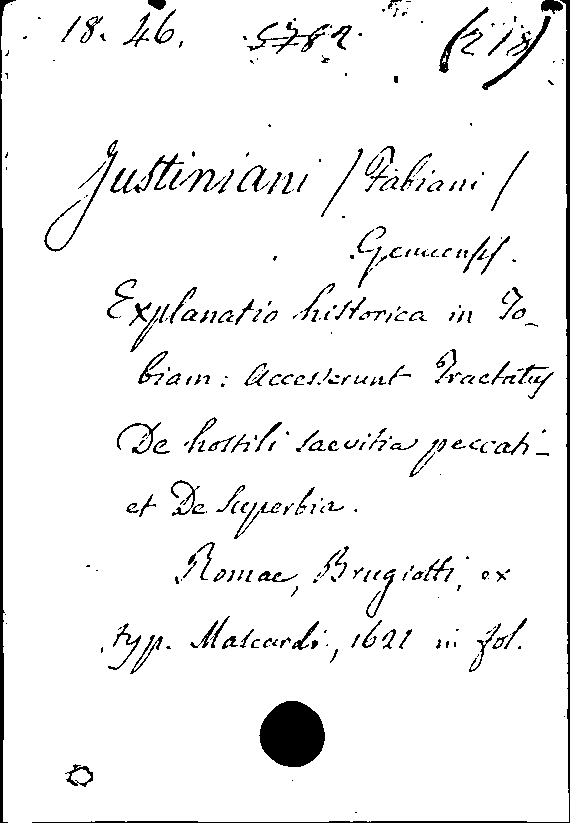 18. 46. 5782 (218)
Justiniani / Fabiani /
Genuensis.
Explanatio historica in To-
biam: Accesserunt Tractatus
De hostili saevitia peccati -
et De Superbia.
Romae, Brugiotti, ex
typ. Mascardi, 1621 in fol.